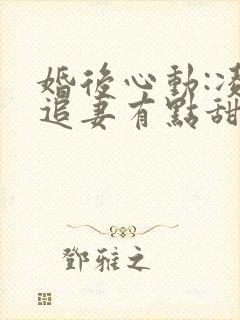 婚後心動:凌
追妻有點甜
鄧雅之